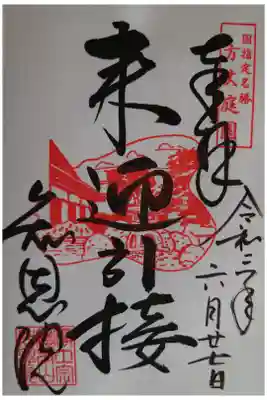 国指定名勝
方丈庭園
奉拝
令和三年六月廿七日
来迎引接
知恩院